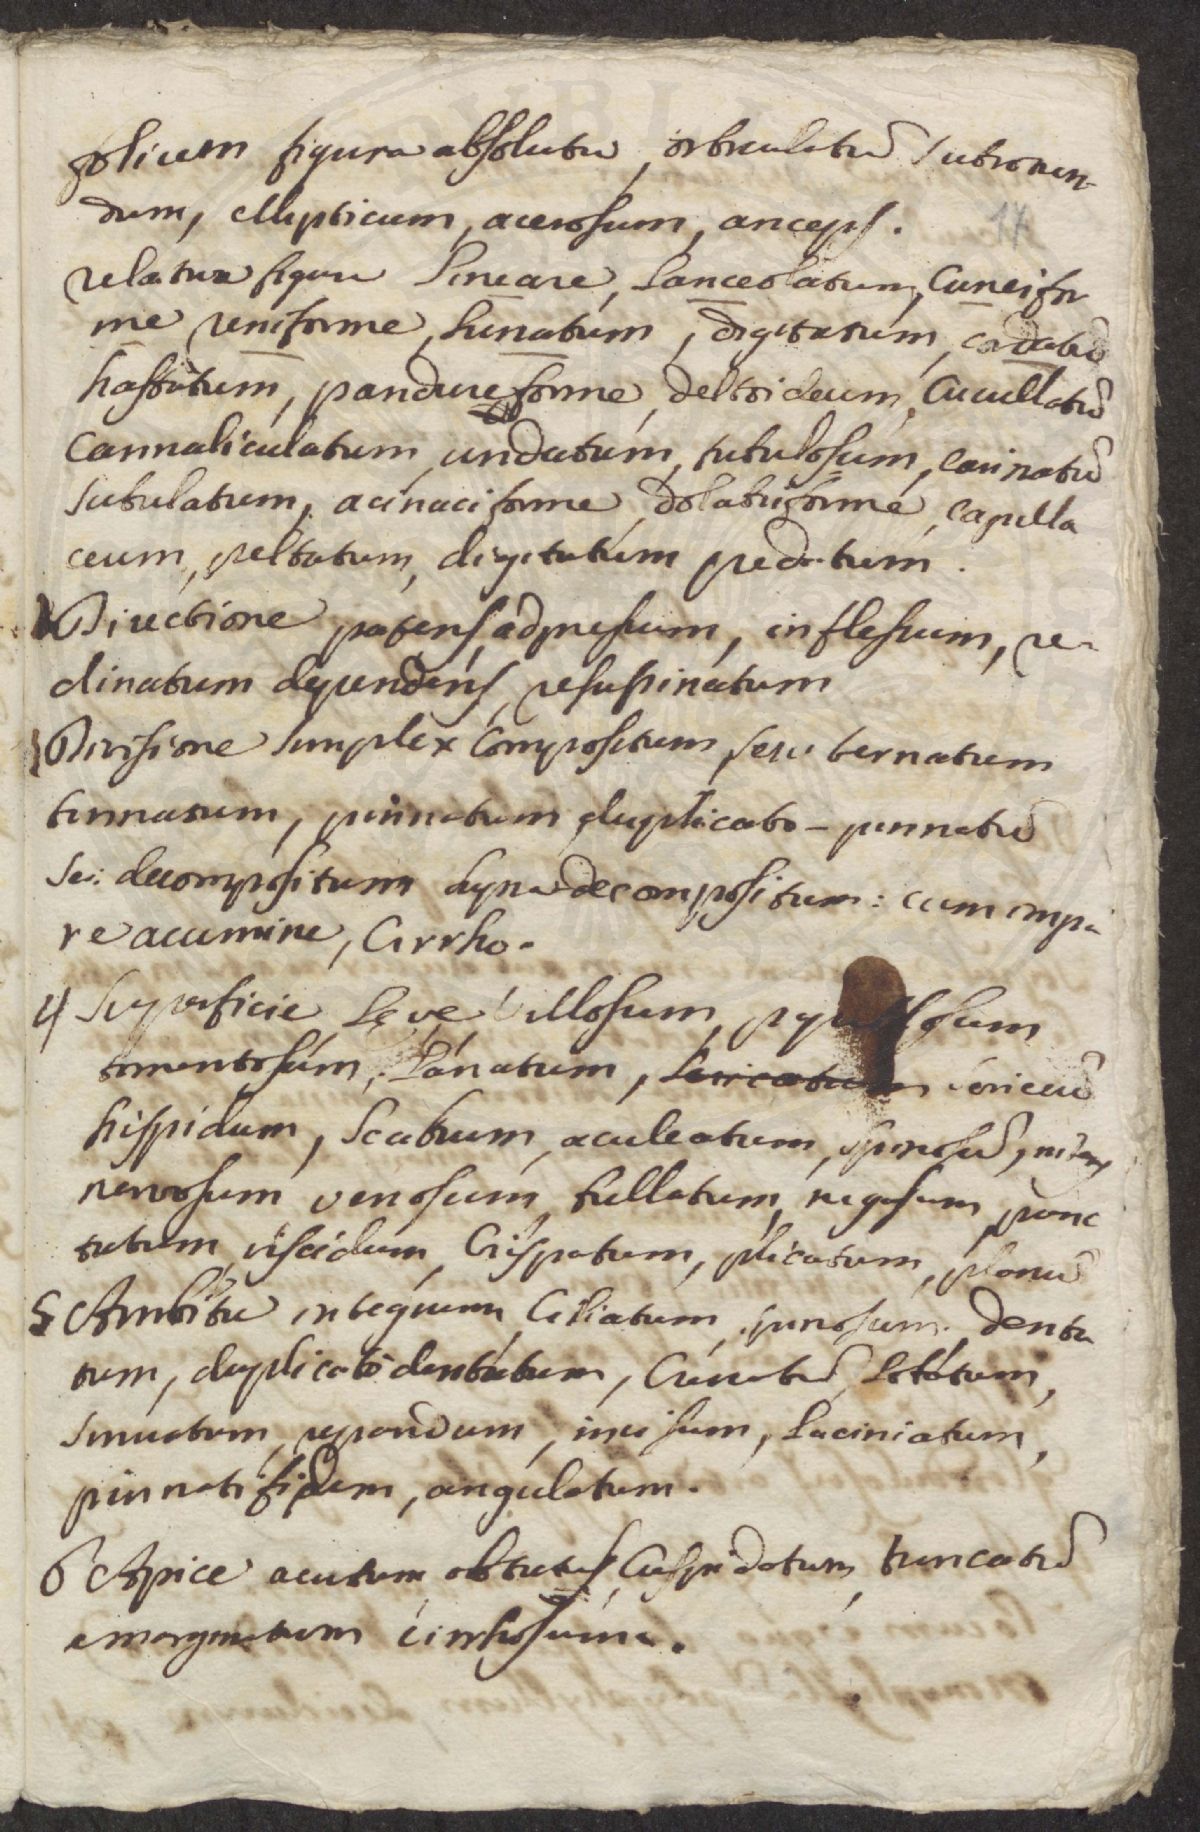 folium figura absoluta, orbiculatū subrotun-
dum, ellipticum, acerosum, anceps.
17
relatiua figura Lineare, Lanceolatum, Cuneifor
me reniforme, Lunatum, digitatum, cordatū
hastatum, pandureforme, deltoideum, Cucullatū
Cannaliculatum undatum, tubulosum, carinatū
subulatum, acinaciforme, dolabriforme, capilla
ceum, peltatum, digitatum pedatum.
Directione patens, adpressum, inflexum, re-
clinatum dependens, resupinatum
Divisione simplex Compositum, seu ternatum
pinnatum, duplicato-pinnatū
seu decompositum supradecompositum: cum impa
re acumine, Cirrho.
4 Superficie Leve Villosum,
tomentosum, Lanatum, sericeū
hispidum, Scabrum, aculeatum, spinosū, nitens
nervosum venosum, bullatum, rugosum, punc
tatum, viscidum, Crispatum, plicatum, planū
5 Ambitu integrum Ciliatum spinosum. denta
tum, duplicato dentatum, Crenatū, Lobatum,
sinuatum, repandum, incisum, Laciniatum,
pinnatifidum, angulatum.
6 Apice acutum obtusus, Cuspidatum, truncatū
emarginatum cirrhosum.